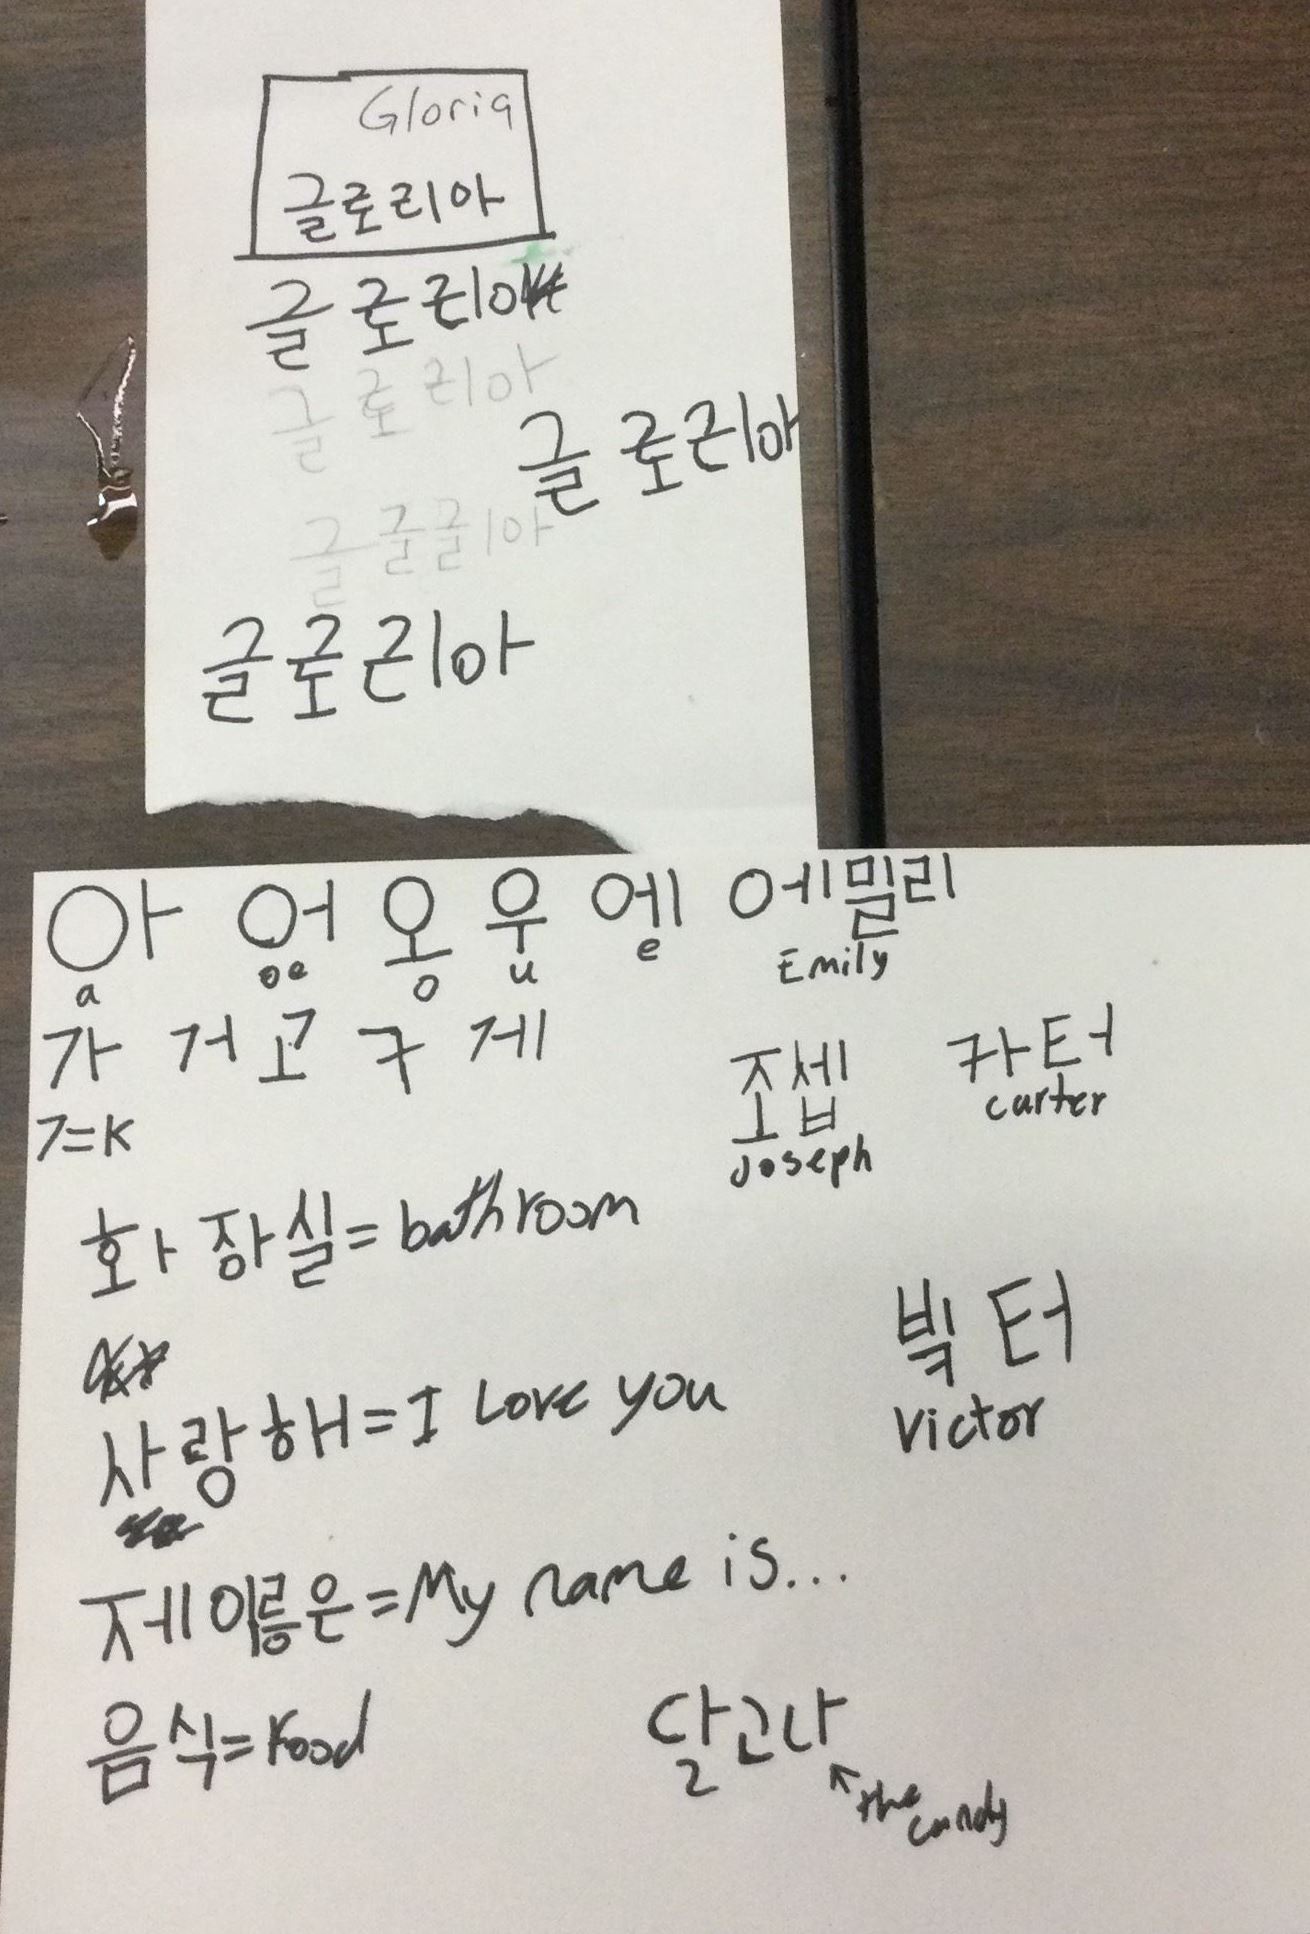 Gloria
글로리아
글로리아
글로리아
글로리아
글글글리아
글로리아
아 어 오 우 에 에밀리
a oe o u e Emily
가 거 고 구 게
조셉 카터
Joseph carter
ㄱ=K
화장실=bathroom
빅터
victor
사랑해=I Love you
제 이름은=My name is...
음식=Food
달고나
↖the candy